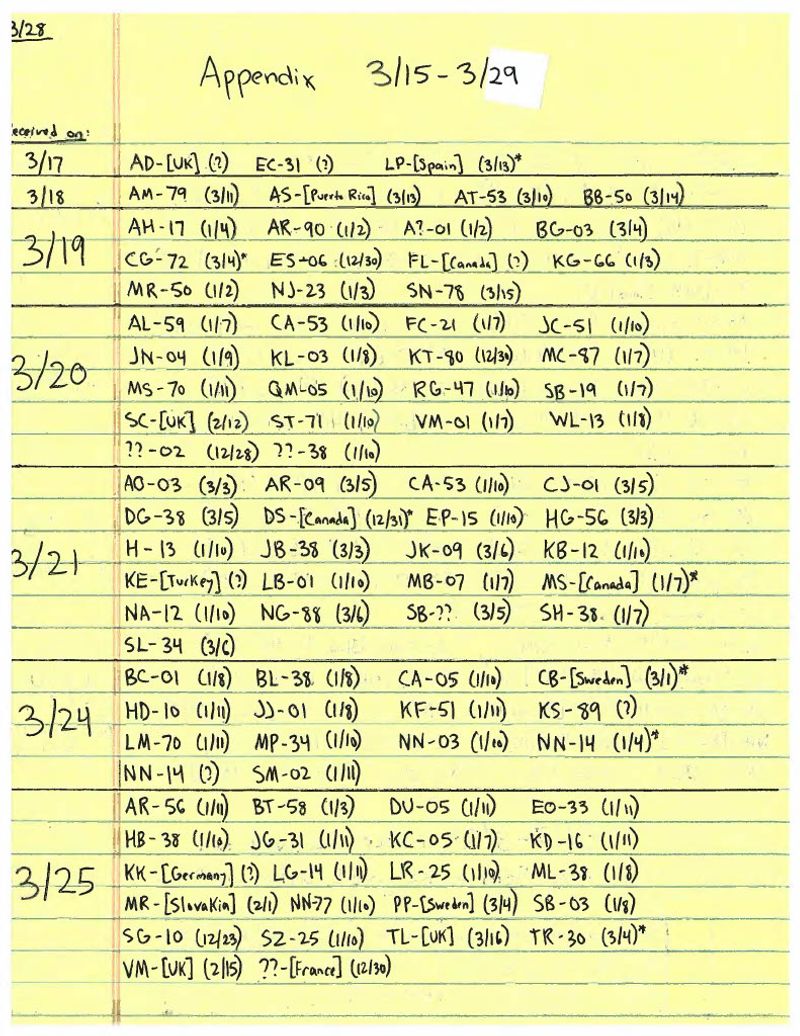 3/28
Appendix 3/15 - 3/29
eceived on:
3/17 AD-[UK] (?) EC-31 (?) LP-[Spain] (3/13)*
3/18 AM-79 (3/11) AS-[Puerto Rico] (3/13) AT-53 (3/10) BB-50 (3/14)
AH-17 (1/4) AR-90 (1/2) A?-01 (1/2) BG-03 (3/4)
3/19 CG-72 (3/4)* ES-06 (12/30) FL-[Canada] (?) KG-66 (1/3)
MR-50 (1/2) NJ-23 (1/3) SN-78 (3/15)
AL-59 (1/7) CA-53 (1/10) FC-21 (1/7) JC-51 (1/10)
3/20 JN-04 (1/9) KL-03 (1/8) KT-80 (12/30) MC-87 (1/7)
MS-70 (1/11) QM-05 (1/10) RG-47 (1/10) SB-19 (1/7)
SC-[UK] (2/12) ST-71 (1/10) VM-01 (1/7) WL-13 (1/8)
??-02 (12/28) ??-38 (1/10)
AO-03 (3/3) AR-09 (3/5) CA-53 (1/10) CJ-01 (3/5)
DG-38 (3/5) DS-[Canada] (12/31)* EP-15 (1/10) HG-56 (3/3)
3/21 H-13 (1/10) JB-38 (3/3) JK-09 (3/6) KB-12 (1/10)
KE-[Turkey] (?) LB-01 (1/10) MB-07 (1/7) MS-[Canada] (1/7)*
NA-12 (1/10) NG-88 (3/6) SB-?? (3/5) SH-38 (1/7)
SL-34 (3/6)
BC-01 (1/8) BL-38 (1/8) CA-05 (1/10) CB-[Sweden] (3/1)*
3/24 HD-10 (1/11) JJ-01 (1/8) KF-51 (1/11) KS-89 (?)
LM-70 (1/11) MP-34 (1/10) NN-03 (1/10) NN-14 (1/4)*
NN-14 (?) SM-02 (1/11)
AR-56 (1/11) BT-58 (1/3) DU-05 (1/11) EO-33 (1/11)
HB-38 (1/10) JG-31 (1/11) KC-05 (1/7) KD-16 (1/11)
3/25 KK-[Germany] (?) LG-14 (1/11) LR-25 (1/10) ML-38 (1/8)
MR-[Slovakia] (2/1) NN-77 (1/10) PP-[Sweden] (3/4) SB-03 (1/8)
SG-10 (12/23) SZ-25 (1/10) TL-[UK] (3/16) TR-30 (3/4)*
VM-[UK] (2/15) ??-[France] (12/30)